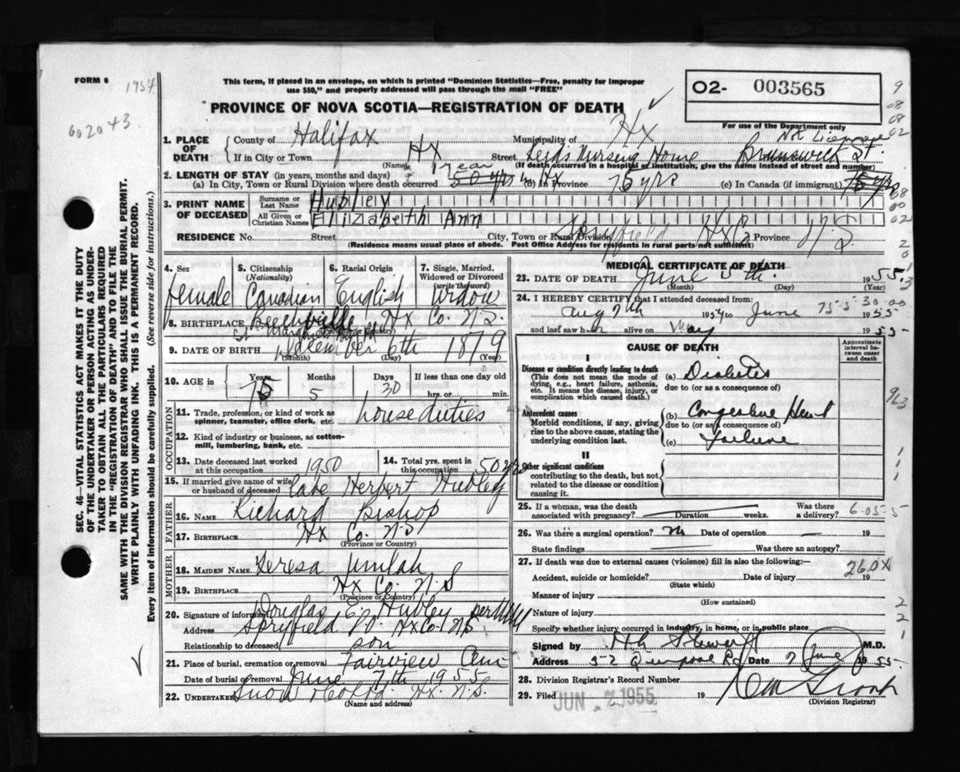 FORM 6
1957
602043
This form, if placed in an envelope, on which is printed "Dominion Statistics—Free, penalty for improper
use $50," and properly addressed will pass through the mail "FREE"
02- 003565
For use of the Department only
PROVINCE OF NOVA SCOTIA—REGISTRATION OF DEATH
SEC. 46—VITAL STATISTICS ACT MAKES IT THE DUTY
OF THE UNDERTAKER OR PERSON ACTING AS UNDER-
TAKER TO OBTAIN ALL THE PARTICULARS REQUIRED
IN THE "REGISTRATION OF DEATH" AND TO FILE THE
SAME WITH THE DIVISION REGISTRAR WHO SHALL ISSUE THE BURIAL PERMIT.
WRITE PLAINLY WITH UNFADING INK. THIS IS A PERMANENT RECORD.
Every item of information should be carefully supplied. (See reverse side for instructions.)
1. PLACE OF DEATH
County of Halifax Municipality of Hx
If in City or Town Hx Street Leeds Nursing Home Brunswick St.
(Name) (If death occurred in a hospital or institution, give the name instead of street and number)
2. LENGTH OF STAY (in years, months and days) 1 year
(a) In City, Town or Rural Division where death occurred 50 yrs in Hx (b) In Province 75 yrs (c) In Canada (if immigrant) 75 yrs
3. PRINT NAME OF DECEASED
Surname or Last Name Hubley
All Given or Christian Names Elizabeth Ann
RESIDENCE No. Street City, Town or Rural Division Spryfield Hx Co Province N.S.
(Residence means usual place of abode. Post Office Address for residents in rural parts not sufficient)
4. Sex
Female
5. Citizenship
(Nationality)
Canadian
6. Racial Origin
English
7. Single, Married,
Widowed or Divorced
(write the word)
Widow
8. BIRTHPLACE Beechville Hx Co. N.S.
9. DATE OF BIRTH December 6th 1879
(Month) (Day) (Year)
10. AGE in Years 75 Months 5 Days 30 If less than one day old
hrs. or min.
OCCUPATION
11. Trade, profession, or kind of work as
spinner, teamster, office clerk, etc. house duties
12. Kind of industry or business, as cotton-
mill, lumbering, bank, etc.
13. Date deceased last worked
at this occupation 1950
14. Total yrs. spent in
this occupation 50 yrs
15. If married give name of wife
or husband of deceased Late Herbert Hubley
FATHER
16. NAME Richard Bishop
17. BIRTHPLACE Hx Co. N.S
(Province or Country)
MOTHER
18. MAIDEN NAME Teresa Umlah
19. BIRTHPLACE Hx Co. N.S
(Province or Country)
20. Signature of informant Douglas E. Hubley
Address Spryfield P.O. Hx Co. N.S
Relationship to deceased son
21. Place of burial, cremation or removal Fairview Cem
Date of burial or removal June 7th 1955
22. UNDERTAKER Snow & Co Ltd Hx. N.S.
(Name and address)
MEDICAL CERTIFICATE OF DEATH
23. DATE OF DEATH June 5th 1955
(Month) (Day) (Year)
24. I HEREBY CERTIFY that I attended deceased from:
Aug 7th 1954 to June 1955
and last saw her alive on May 1955
CAUSE OF DEATH
Approximate
interval be-
tween onset
and death
I
Disease or condition directly leading to death
(This does not mean the mode of
dying, e.g., heart failure, asthenia,
etc. It means the disease, injury, or
complication which caused death.)
(a) Diabetes
due to (or as a consequence of)
Antecedent causes
Morbid conditions, if any, giving
rise to the above cause, stating the
underlying condition last.
(b) Congestive Heart
due to (or as a consequence of)
(c) Failure
II
Other significant conditions
contributing to the death, but not
related to the disease or condition
causing it.
25. If a woman, was the death
associated with pregnancy? Duration weeks. Was there
a delivery?
26. Was there a surgical operation? no Date of operation 19
State findings Was there an autopsy?
27. If death was due to external causes (violence) fill in also the following:—
260X
Accident, suicide or homicide? Date of injury 19
(State which)
Manner of injury
(How sustained)
Nature of injury
Specify whether injury occurred in industry, in home, or in public place
Signed by M.D.
Address 52 Quinpool Rd Date 7 June 1955
28. Division Registrar's Record Number
29. Filed JUN 7 1955 19
(Division Registrar)